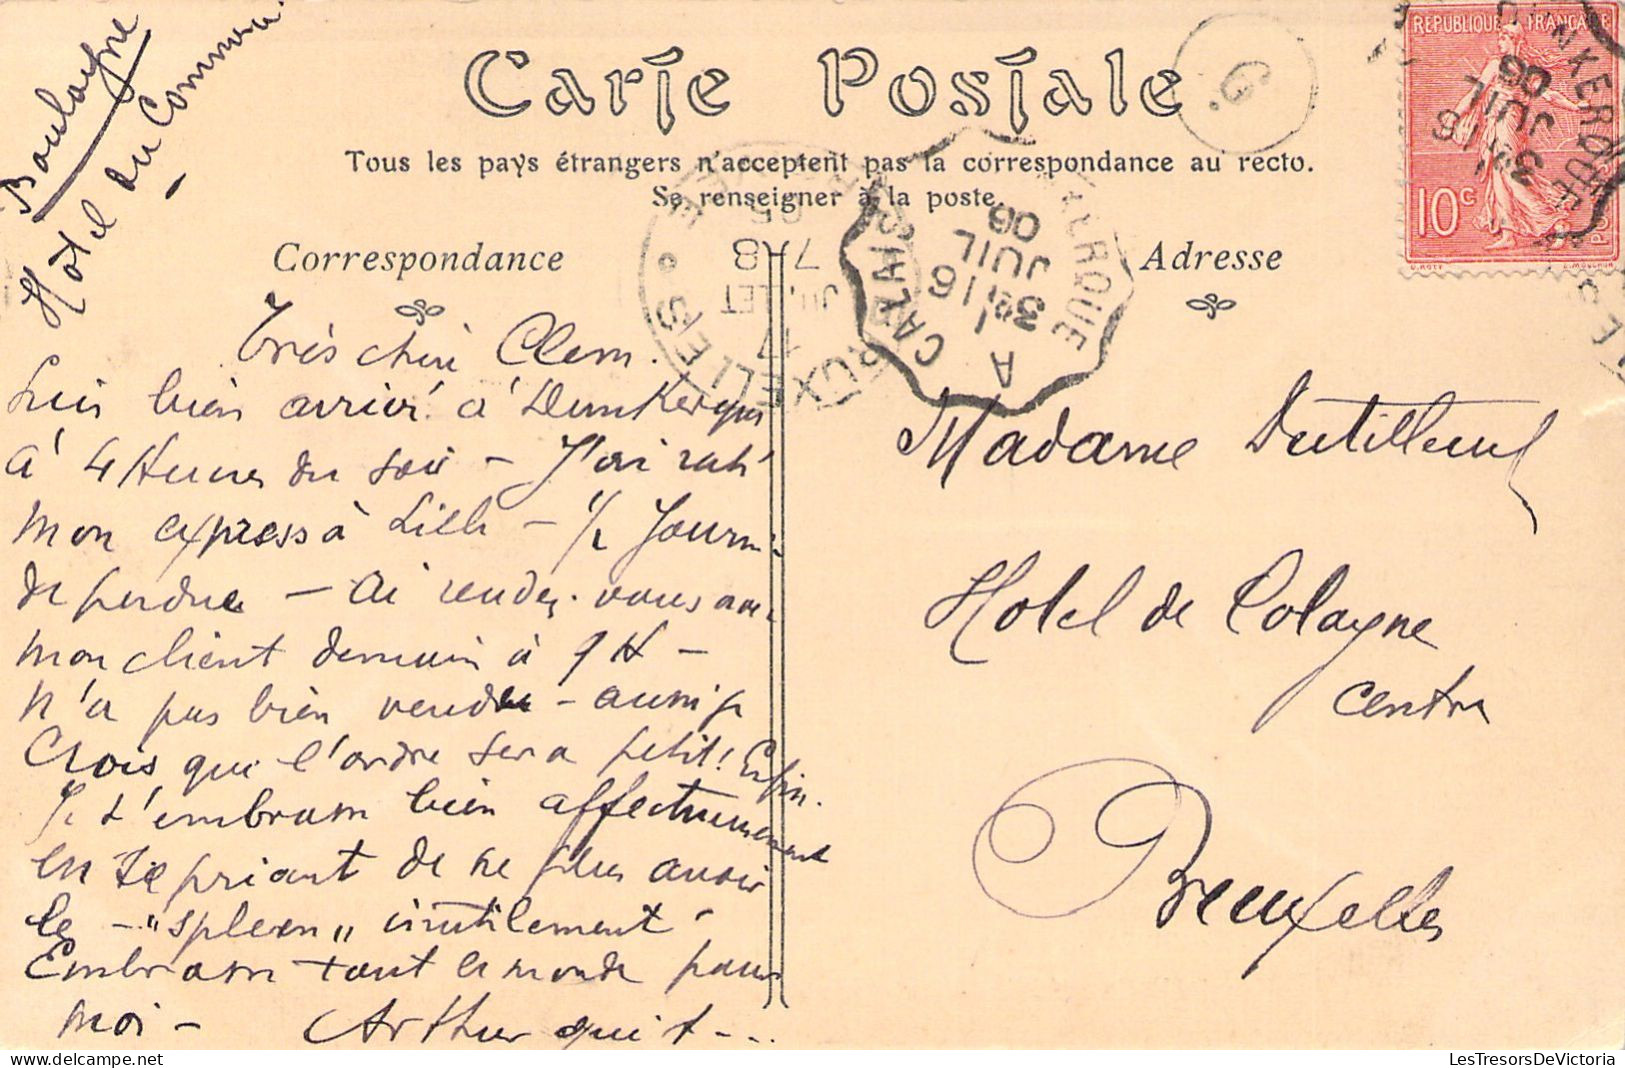 Boulogne
Hotel du Commerce
Carte Postale
G.
Tous les pays étrangers n'acceptent pas la correspondance au recto.
Se renseigner à la poste.
Correspondance
Adresse
REPUBLIQUE FRANÇAISE
10c
POSTES
O. ROTY
E. MOUCHON
DUNKERQUE
3E
16
JUIL
06
CALAIS A DUNKERQUE
3E
16
JUIL
06
BRUXELLES
7-8
JUILLET
17
Très chère Clem.
Suis bien arrivé à Dunkerque
à 4 Heures du soir - J'ai raté
mon express à Lille - 1/2 Journé
de perdue - ai rendez-vous avec
mon client demain à 9 H -
n'a pas bien vendu - aussi je
Crois que l'ordre sera petit! Enfin.
Je t'embrasse bien affectueusement
en te priant de ne plus avoir
le - "spleen" inutilement -
Embrasse tout le monde pour
moi - Arthur qui t...
Madame Dutilleul
Hotel de Cologne
Centre
Bruxelles
LesTresorsDeVictoria